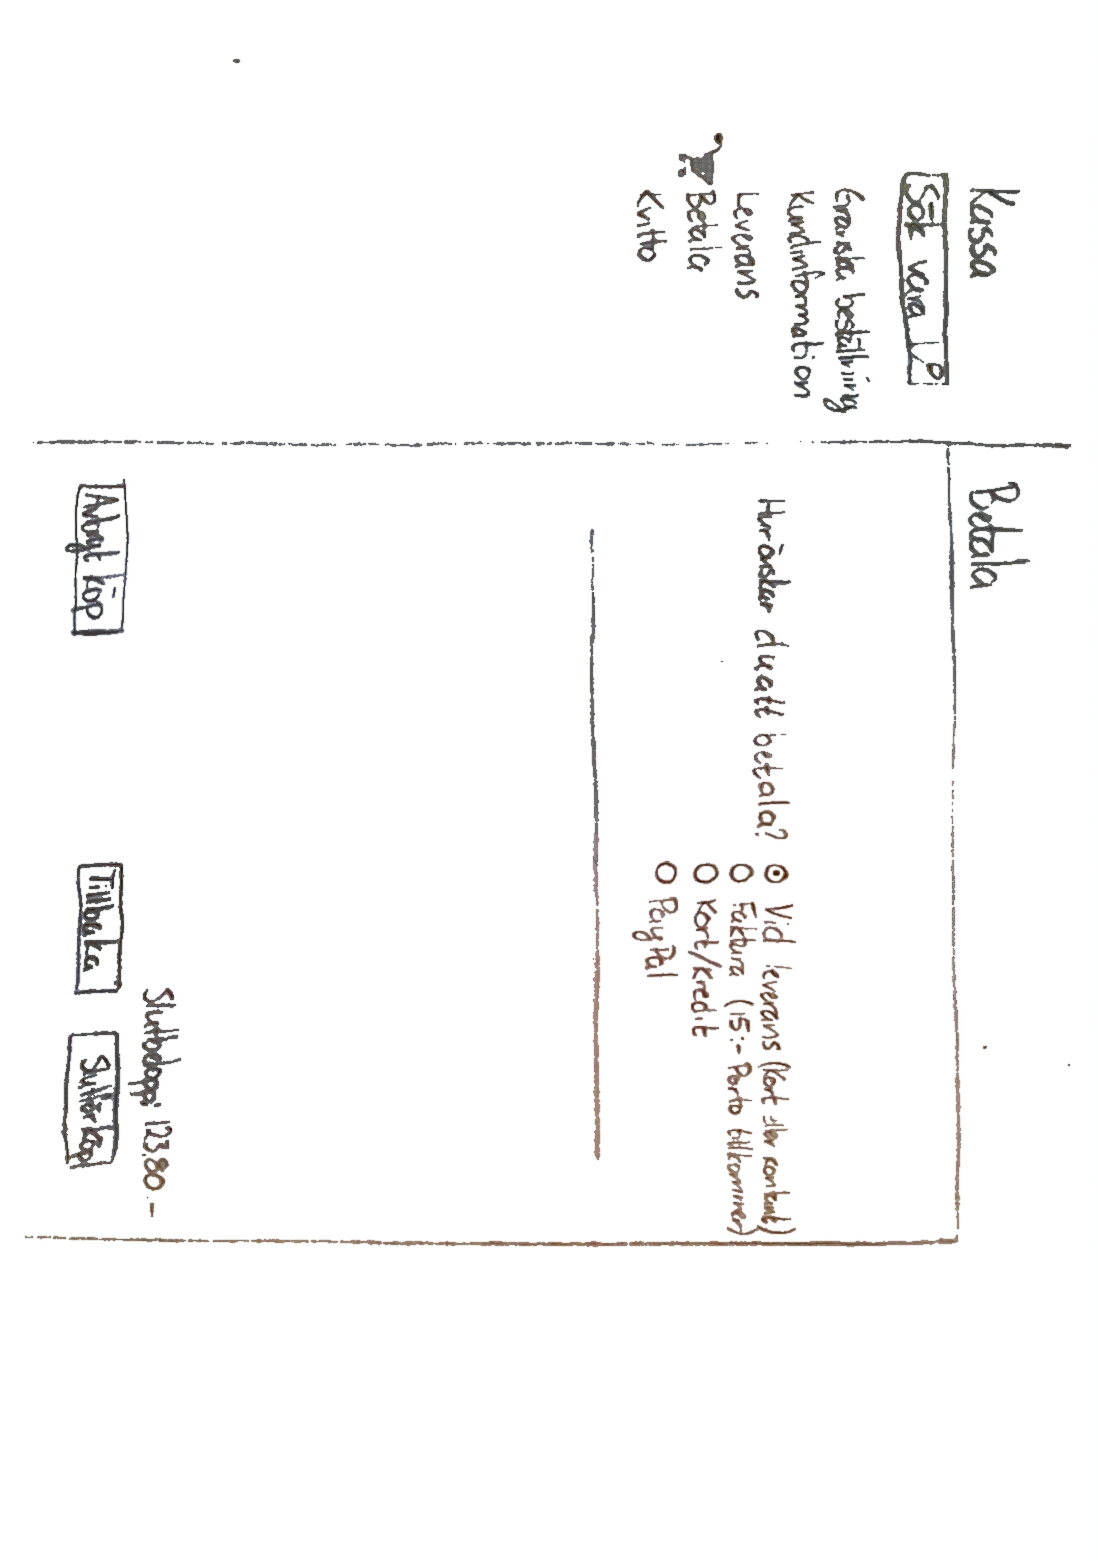 Kassa
Sök vara
Granska beställning
Kundinformation
Leverans
Betala
Kvitto
Betala
Hur önskar du att betala?
Vid leverans (Kort eller kontant)
Faktura (15:- Porto tillkommer)
Kort/Kredit
PayPal
Slutbelopp: 123.80 :-
Avbryt köp
Tillbaka
Slutför köp